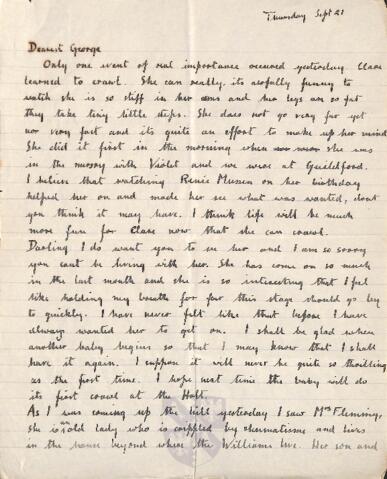 Thursday Sept 21
Dearest George
Only one event of real importance occured yesterday. Clare
learned to crawl. She can really, its awfully funny to
watch she is so stiff in her arms and her legs are so fat
they take tiny little steps. She does not go very far yet
nor very fast and its quite an effort to make up her mind
She did it first in the morning when she was
in the nursery with Violet and we were at Guildford.
I believe that watching Renie on her birthday
helped her on and made her see what was wanted, dont
you think it may have. I think life will be much
more fun for Clare now that she can crawl.
Darling I do want you to see her and I am so sorry
you cant be living with her. She has come on so much
in the last month and she is so interesting that I feel
like holding my breath for fear this stage should go by
to quickly. I have never felt like that before I have
always wanted her to get on. I shall be glad when
another baby begins so that I may know that I shall
have it again. I suppose it will never be quite so thrilling
as the first time. I hope next time the baby will do
its first crawl at the Holt.
As I was coming up the hill yesterday I saw Mrs Fleming,
she is an old lady who is crippled by rheumatism and lives
in the house beyond where the Williams live. Her son and